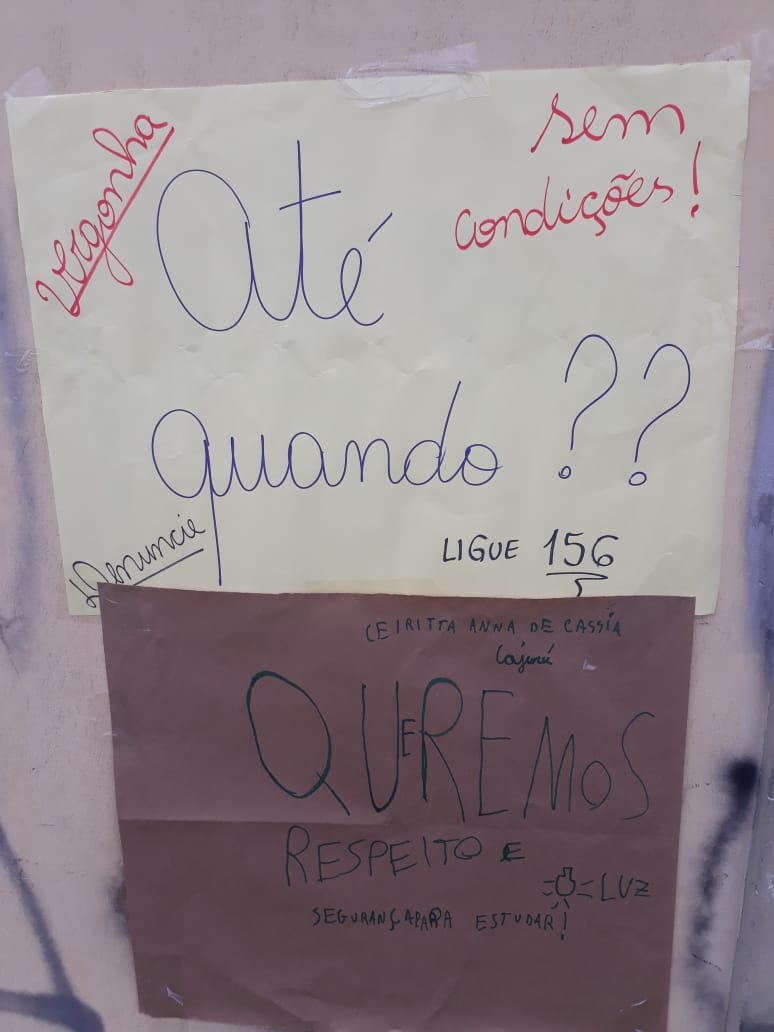 Vergonha
sem
condições!
Até
quando??
Denuncie
LIGUE 156
CEI RITTA ANNA DE CASSIA
Cajurú
QUEREMOS
RESPEITO E
LUZ
SEGURANÇA PARA ESTUDAR!